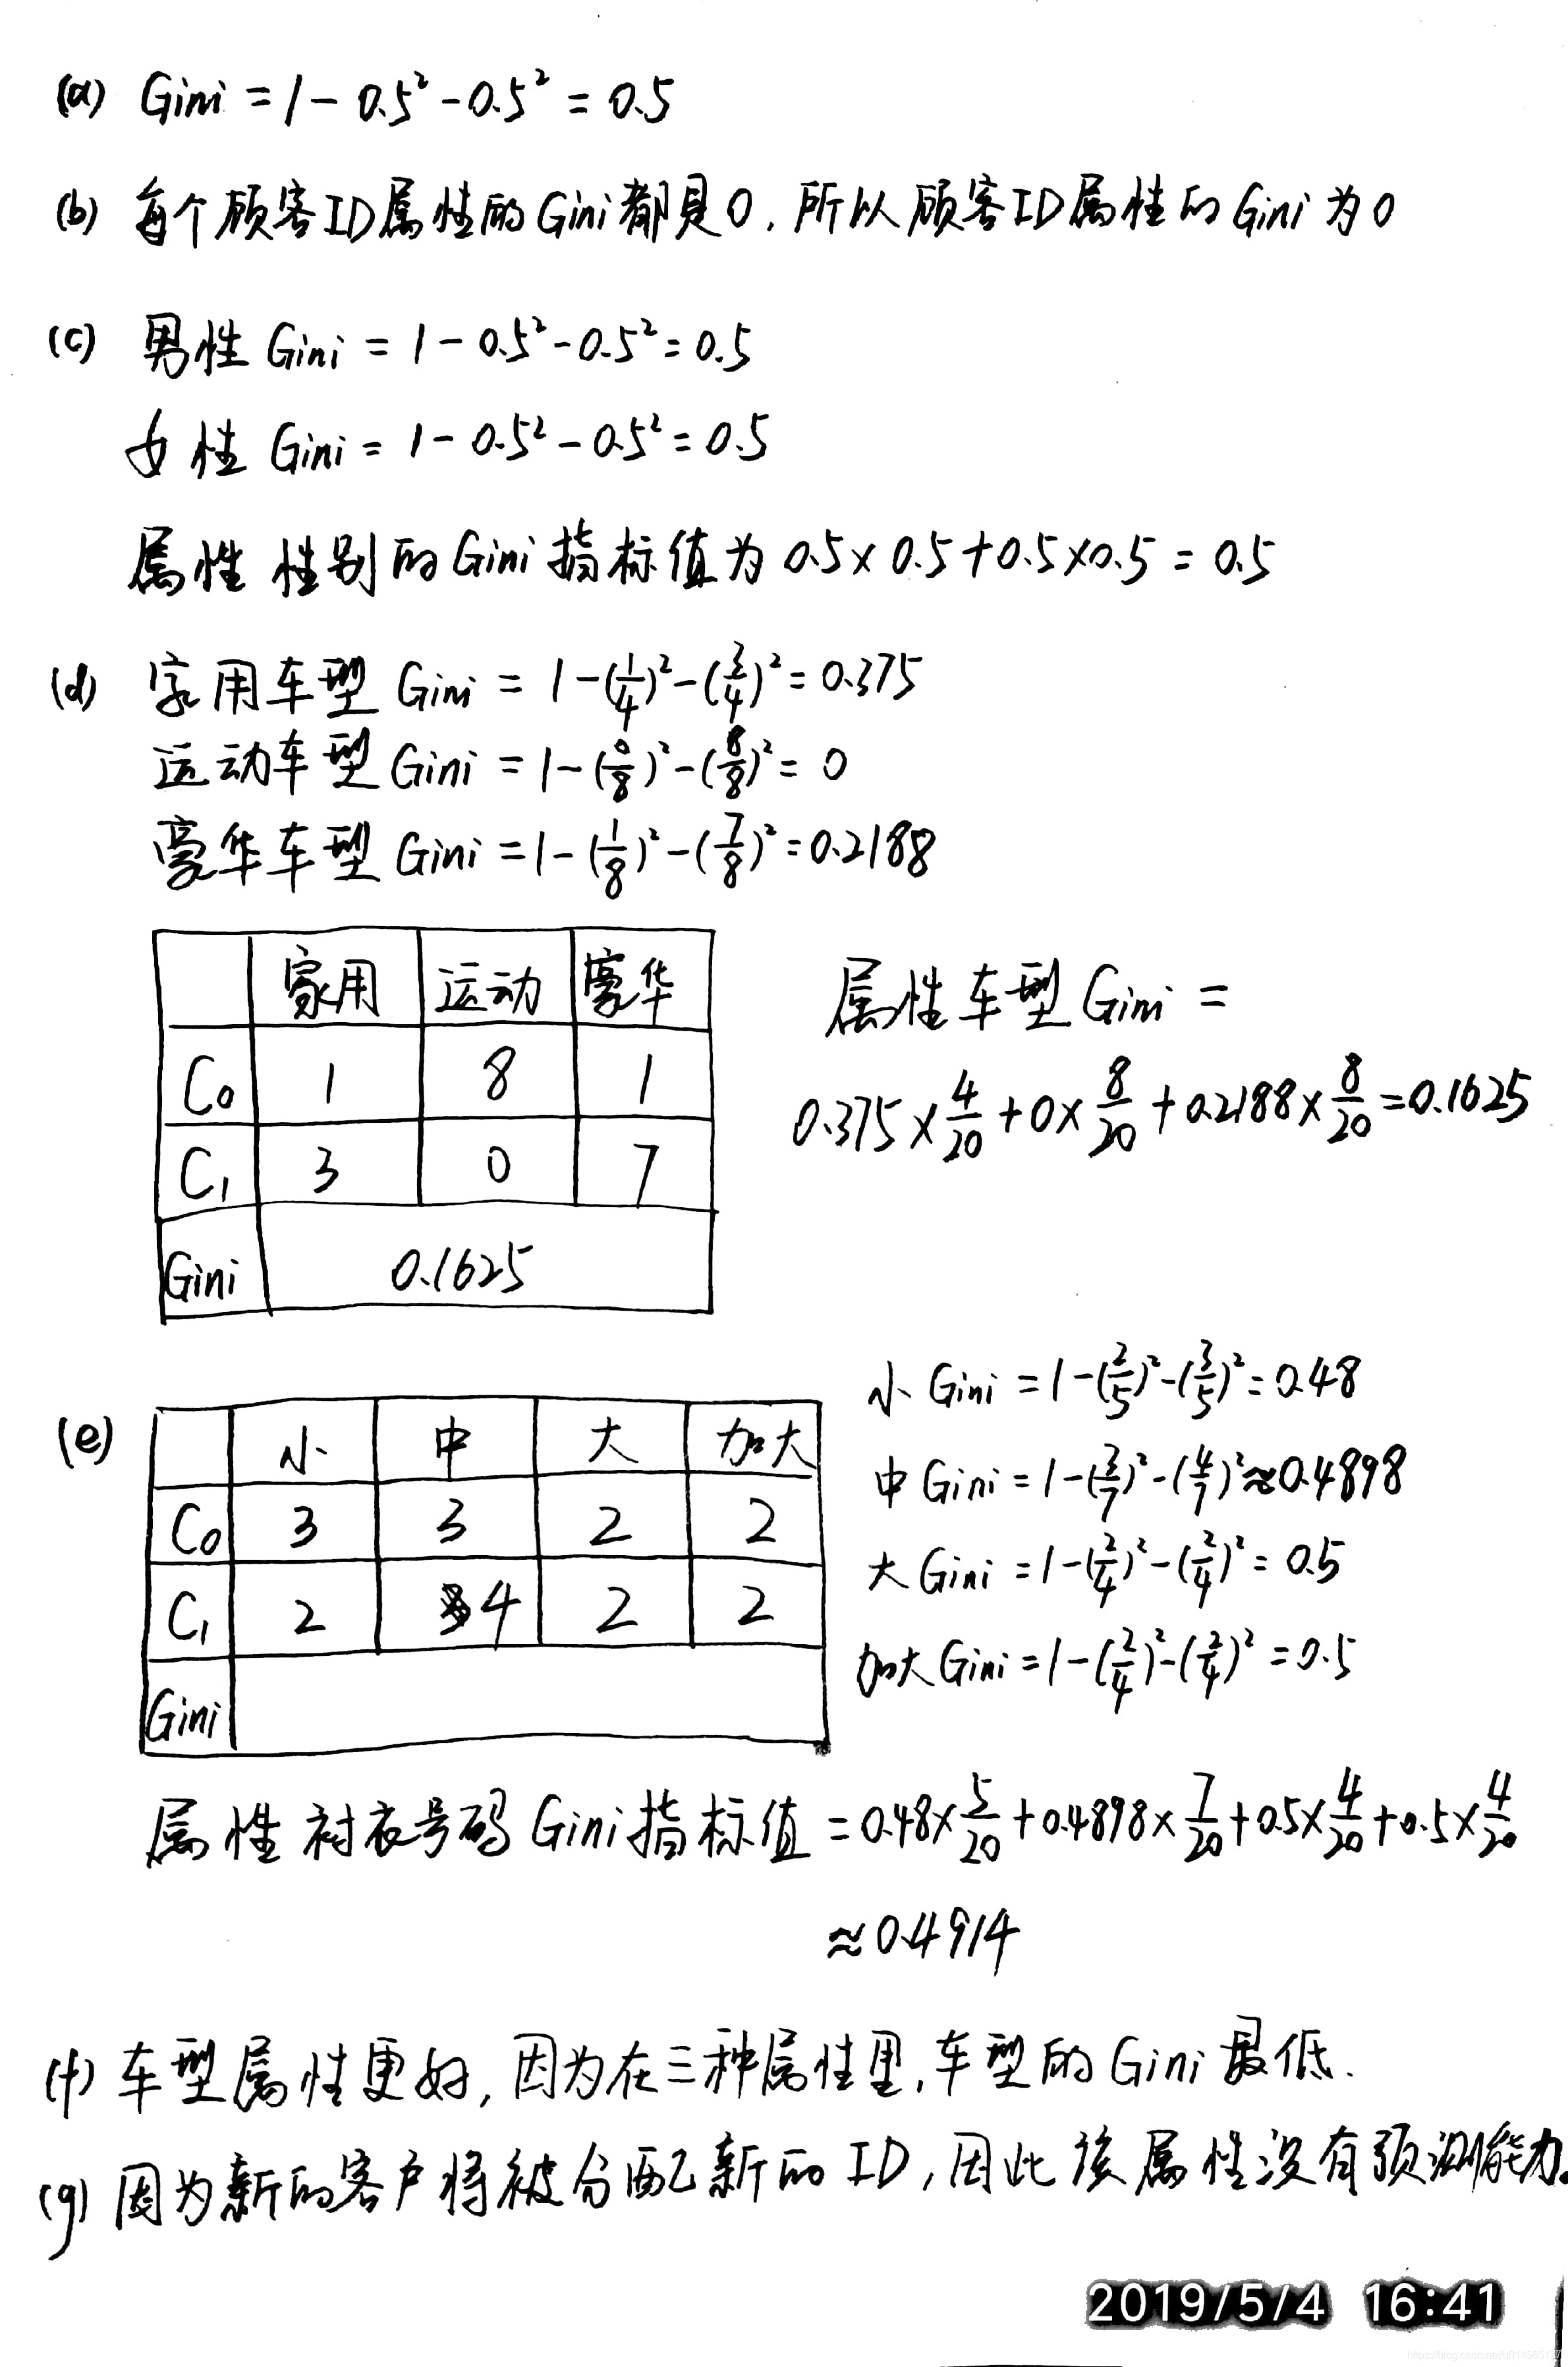 (a) Gini = 1 - 0.5² - 0.5² = 0.5
(b) 每个顾客ID属性的Gini都是0, 所以顾客ID属性的Gini为0
(c) 男性 Gini = 1 - 0.5² - 0.5² = 0.5
女性 Gini = 1 - 0.5² - 0.5² = 0.5
属性 性别的Gini指标值为 0.5 × 0.5 + 0.5 × 0.5 = 0.5
(d) 家用车型 Gini = 1 - (1/4)² - (3/4)² = 0.375
运动车型 Gini = 1 - (0/8)² - (8/8)² = 0
豪华车型 Gini = 1 - (1/8)² - (7/8)² = 0.2188
家用 运动 豪华
C₀ 1 8 1
C₁ 3 0 7
Gini 0.1625
属性车型 Gini =
0.375 × 4/20 + 0 × 8/20 + 0.2188 × 8/20 = 0.1625
(e)
小 中 大 加大
C₀ 3 3 2 2
C₁ 2 4 2 2
Gini
小 Gini = 1 - (2/5)² - (3/5)² = 0.48
中 Gini = 1 - (3/7)² - (4/7)² ≈ 0.4898
大 Gini = 1 - (2/4)² - (2/4)² = 0.5
加大 Gini = 1 - (2/4)² - (2/4)² = 0.5
属性 衬衣号码 Gini指标值 = 0.48 × 5/20 + 0.4898 × 7/20 + 0.5 × 4/20 + 0.5 × 4/20
≈ 0.4914
(f) 车型属性更好, 因为在三种属性里, 车型的Gini最低.
(g) 因为新的客户将被分配新的 ID, 因此该属性没有预测能力。
2019/5/4 16:41